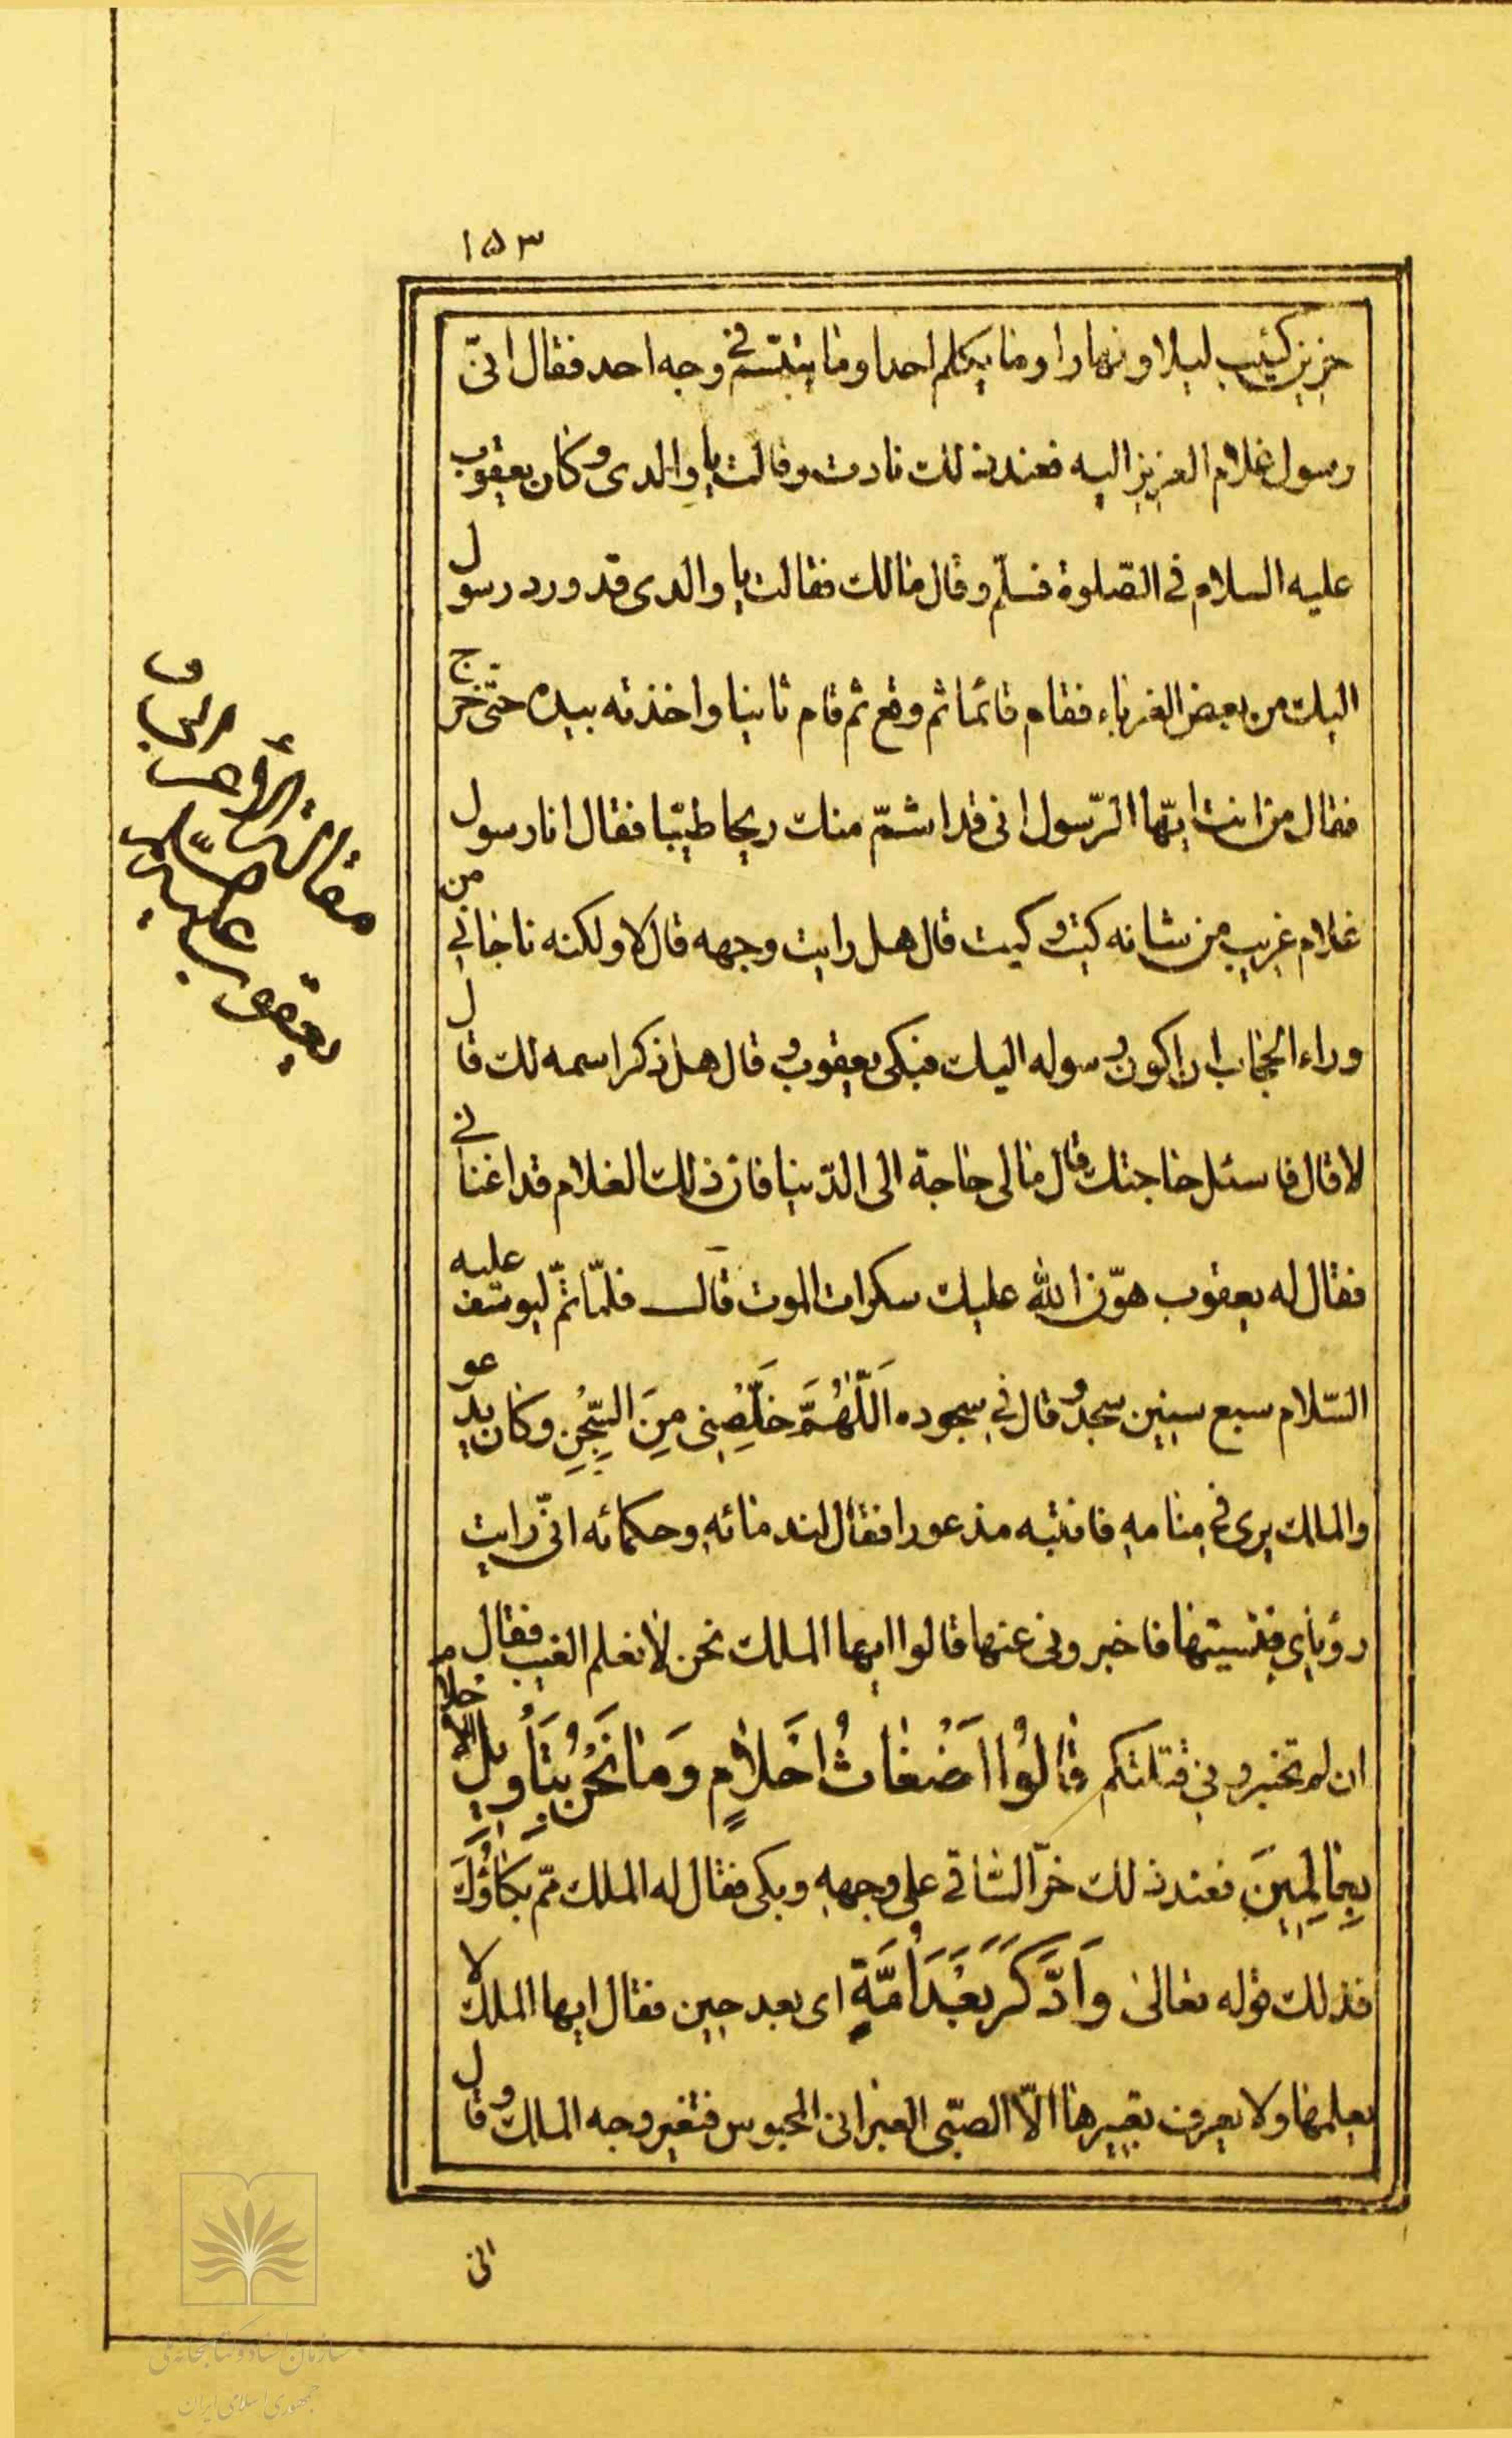 ١٥٣
حزين كئيب ليلا ونهارا وما يكلم احدا وما يتبسّم في وجه احد فقال انّى
رسول غلام العزيز اليه فعند ذلك نادت وقالت يا والدى وكان يعقوب
عليه السلام فى الصّلوة فسلّم وقال مالك فقالت يا والدى قد ورد رسول
اليك من بعض الغرباء فقام قائما ثم وقع ثم قام ثانيا واخذته بيده حتى خرج
فقال من انت ايّها الرّسول انى قد اشمّ منك ريحا طيّبا فقال انا رسول
غلام غريب من شانه كيت وكيت قال هل رايت وجهه قال لا ولكنه ناجانى من
وراء الحجاب ان اكون رسوله اليك فبكى يعقوب وقال هل ذكر اسمه لك قال
لا قال فاسئل حاجتك قال مالى حاجة الى الدّنيا فان ذلك الغلام قد اغنانى
فقال له يعقوب هوّن الله عليك سكرات الموت قال فلمّا تمّ ليوسف عليه
السّلام سبع سنين سجد وقال فى سجوده اَللّٰهُمَّ خَلِّصْنِى مِنَ السِّجْنِ وكان يدعو
والملك يرى فى منامه فانتبه مذعورا فقال لندمائه وحكمائه انّى رايت
رؤياى فنسيتها فاخبرونى عنها قالوا ايها الملك نحن لا نعلم الغيب فقال
ان لم تخبرونى قتلتكم قٰالُوْا اَضْغٰاثُ اَحْلاٰمٍ وَمٰا نَحْنُ بِتَأْوِيلِ الْاَحْلاٰمِ
بِعٰالِمِينَ فعند ذلك خرّ السّاقى على وجهه وبكى فقال له الملك ممّ بكاؤُكَ
فذلك قوله تعالى وَادَّكَرَ بَعْدَ اُمَّةٍ اى بعد حين فقال ايها الملك لا
يعلمها ولا يعرف تعبيرها الّا الصبّى العبرانى المحبوس فتغير وجه الملك وقال
انى
مقالة الأعرابى و
يعقوب عليه السلام
سازمان اسناد و کتابخانه ملی
جمهوری اسلامی ایران